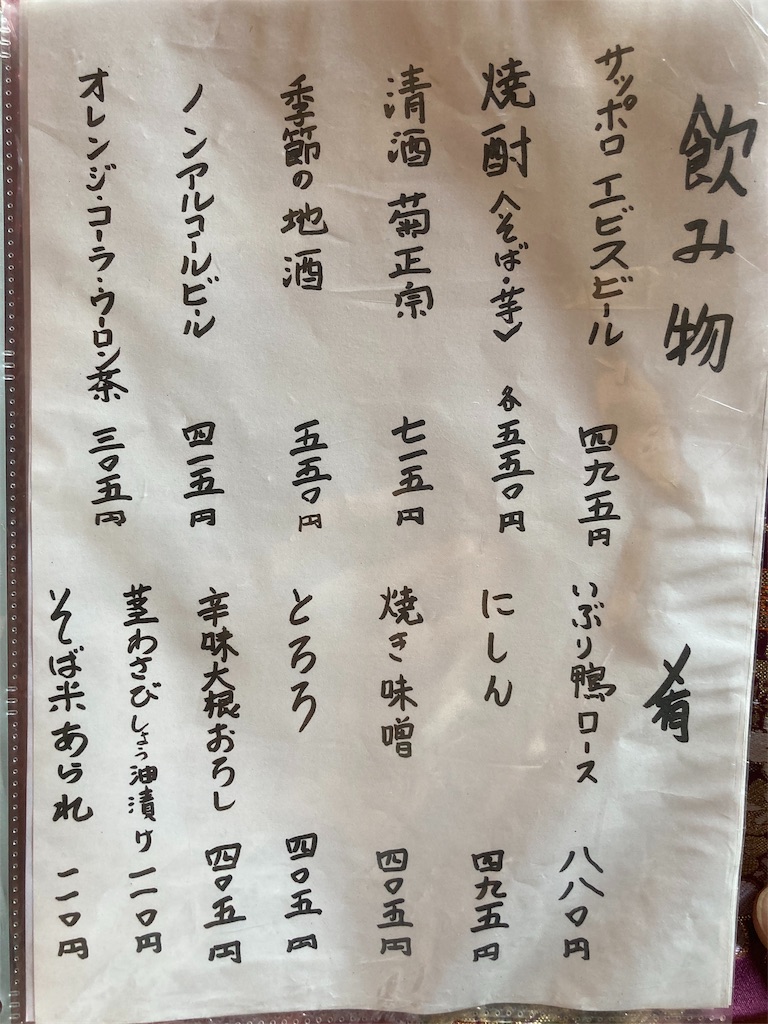 飲み物
サッポロ エビスビール 四九五円
焼酎〈そば・芋〉 各五五〇円
清酒 菊正宗 七一五円
季節の地酒 五五〇円
ノンアルコールビール 四一五円
オレンジ・コーラ・ウーロン茶 三〇五円
肴
いぶり鴨ロース 八八〇円
にしん 四九五円
焼き味噌 四〇五円
とろろ 四〇五円
辛味大根おろし 四〇五円
茎わさびしょう油漬け 一一〇円
そば米あられ 一一〇円